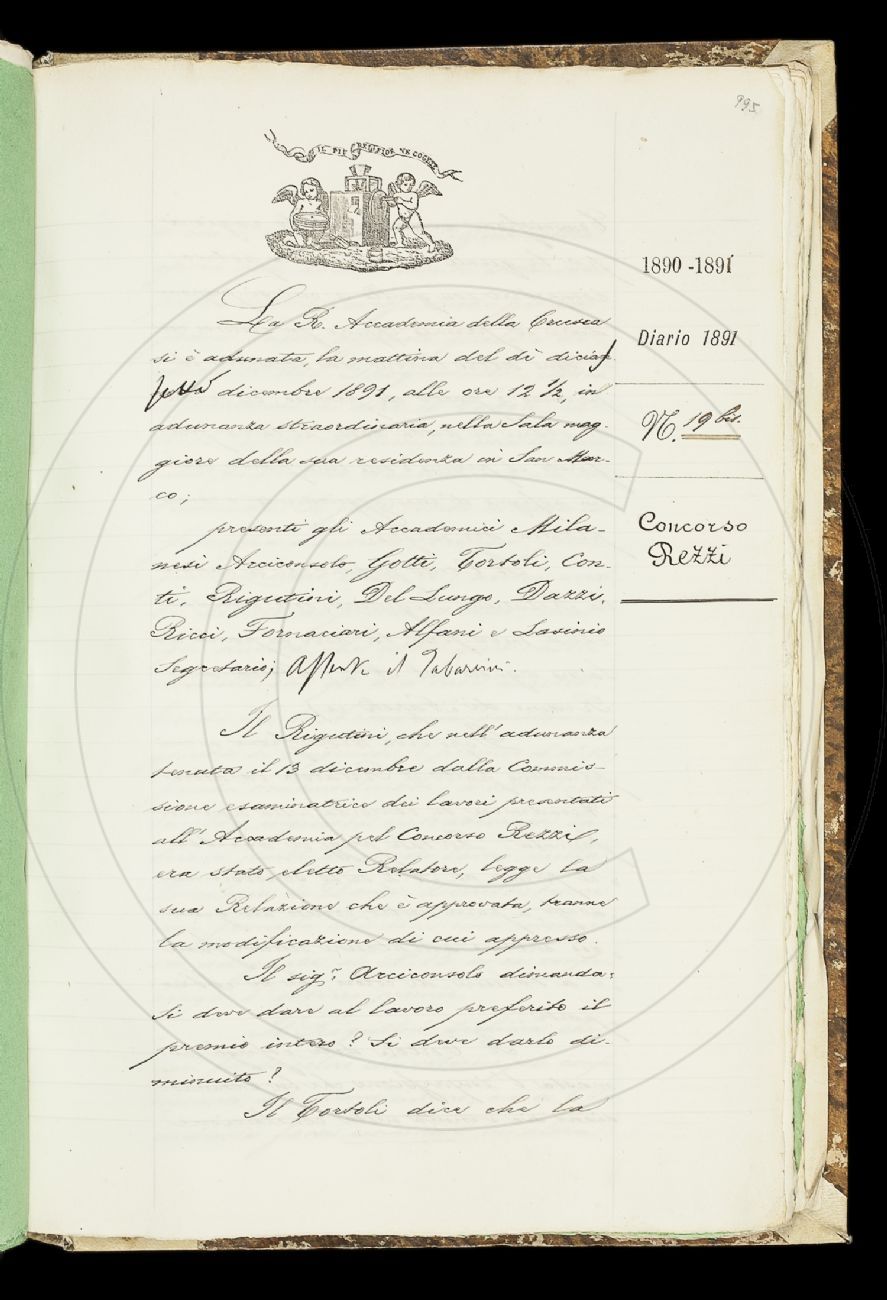 995
IL PIÙ BEL FIOR NE COGLIE
1890-1891
Diario 1891
N. 19 bis.
Concorso
Rezzi
La R. Accademia della Crusca
si è adunata, la mattina del dì dicias-
sette dicembre 1891, alle ore 12 1/2, in
adunanza straordinaria, nella Sala mag-
giore della sua residenza in San Mar-
co;
presenti gli Accademici Mila-
nesi Arciconsolo, Gotti, Tortoli, Con-
ti, Rigutini, Del Lungo, Dazzi,
Ricci, Fornaciari, Alfani e Lavinio
Segretario; Assente il Tabarrini.
Il Rigutini, che nell' adunanza
tenuta il 13 dicembre dalla Commis-
sione esaminatrice dei lavori presentati
all' Accademia pel Concorso Rezzi,
era stato eletto Relatore, legge la
sua Relazione che è approvata, tranne
la modificazione di cui appresso.
Il sig.r Arciconsolo dimanda:
Si deve dare al lavoro preferito il
premio intero? Si deve darlo di-
minuito?
Il Tortoli dice che la